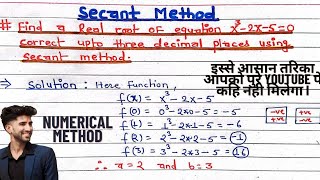 Secant Method
# Find a Real root of equation x³-2x-5=0
correct upto three decimal places using
secant method.
इससे आसान तरीका
आपको पूरे YOUTUBE पे
कहि नही मिलेगा।
→ Solution: Here Function,
f(x) = x³-2x-5
f(0) = 0³-2*0-5 = -5
f(1) = 1³-2*1-5 = -6
f(2) = 2³-2*2-5 = (-1)
f(3) = 3³-2*3-5 = (16)
∴ a=2 and b=3
-ve +ve
+ve -ve
NUMERICAL
METHOD